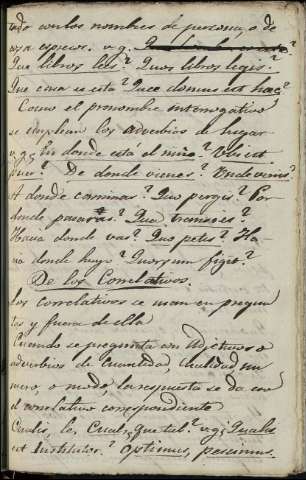 todo con los nombres de personas, o de
cosa espress. v.g.
Que libros lees? Quos libros legis?
Que casa es esta? Quæ domus est hæc?
Como el pronombre interrogativo
se emplean los adverbios de lugar
v.g. En donde está el niño? Ubi est
puer? De donde vienes? Unde venis?
A donde caminas? Quo pergis? Por
donde pasaras? Qua transies?
Hacia donde vas? Quo petis? Ha-
cia donde huyo? Quorsum fugit?
De los Correlativos.
Los correlativos se usan en pregun
tas y fuera de ella
Cuando se pregunta con Adjetivos o
adverbios de cuantidad, cualidad nu
mero, o modo, la respuesta se da con
el correlativo correspondiente
Qualis, le, Cual, que tal? v.g. Qualis
est Institutor? Optimus, pessimus.